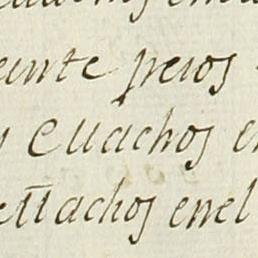 einte pesos
y Cuachos en
ettachos enel